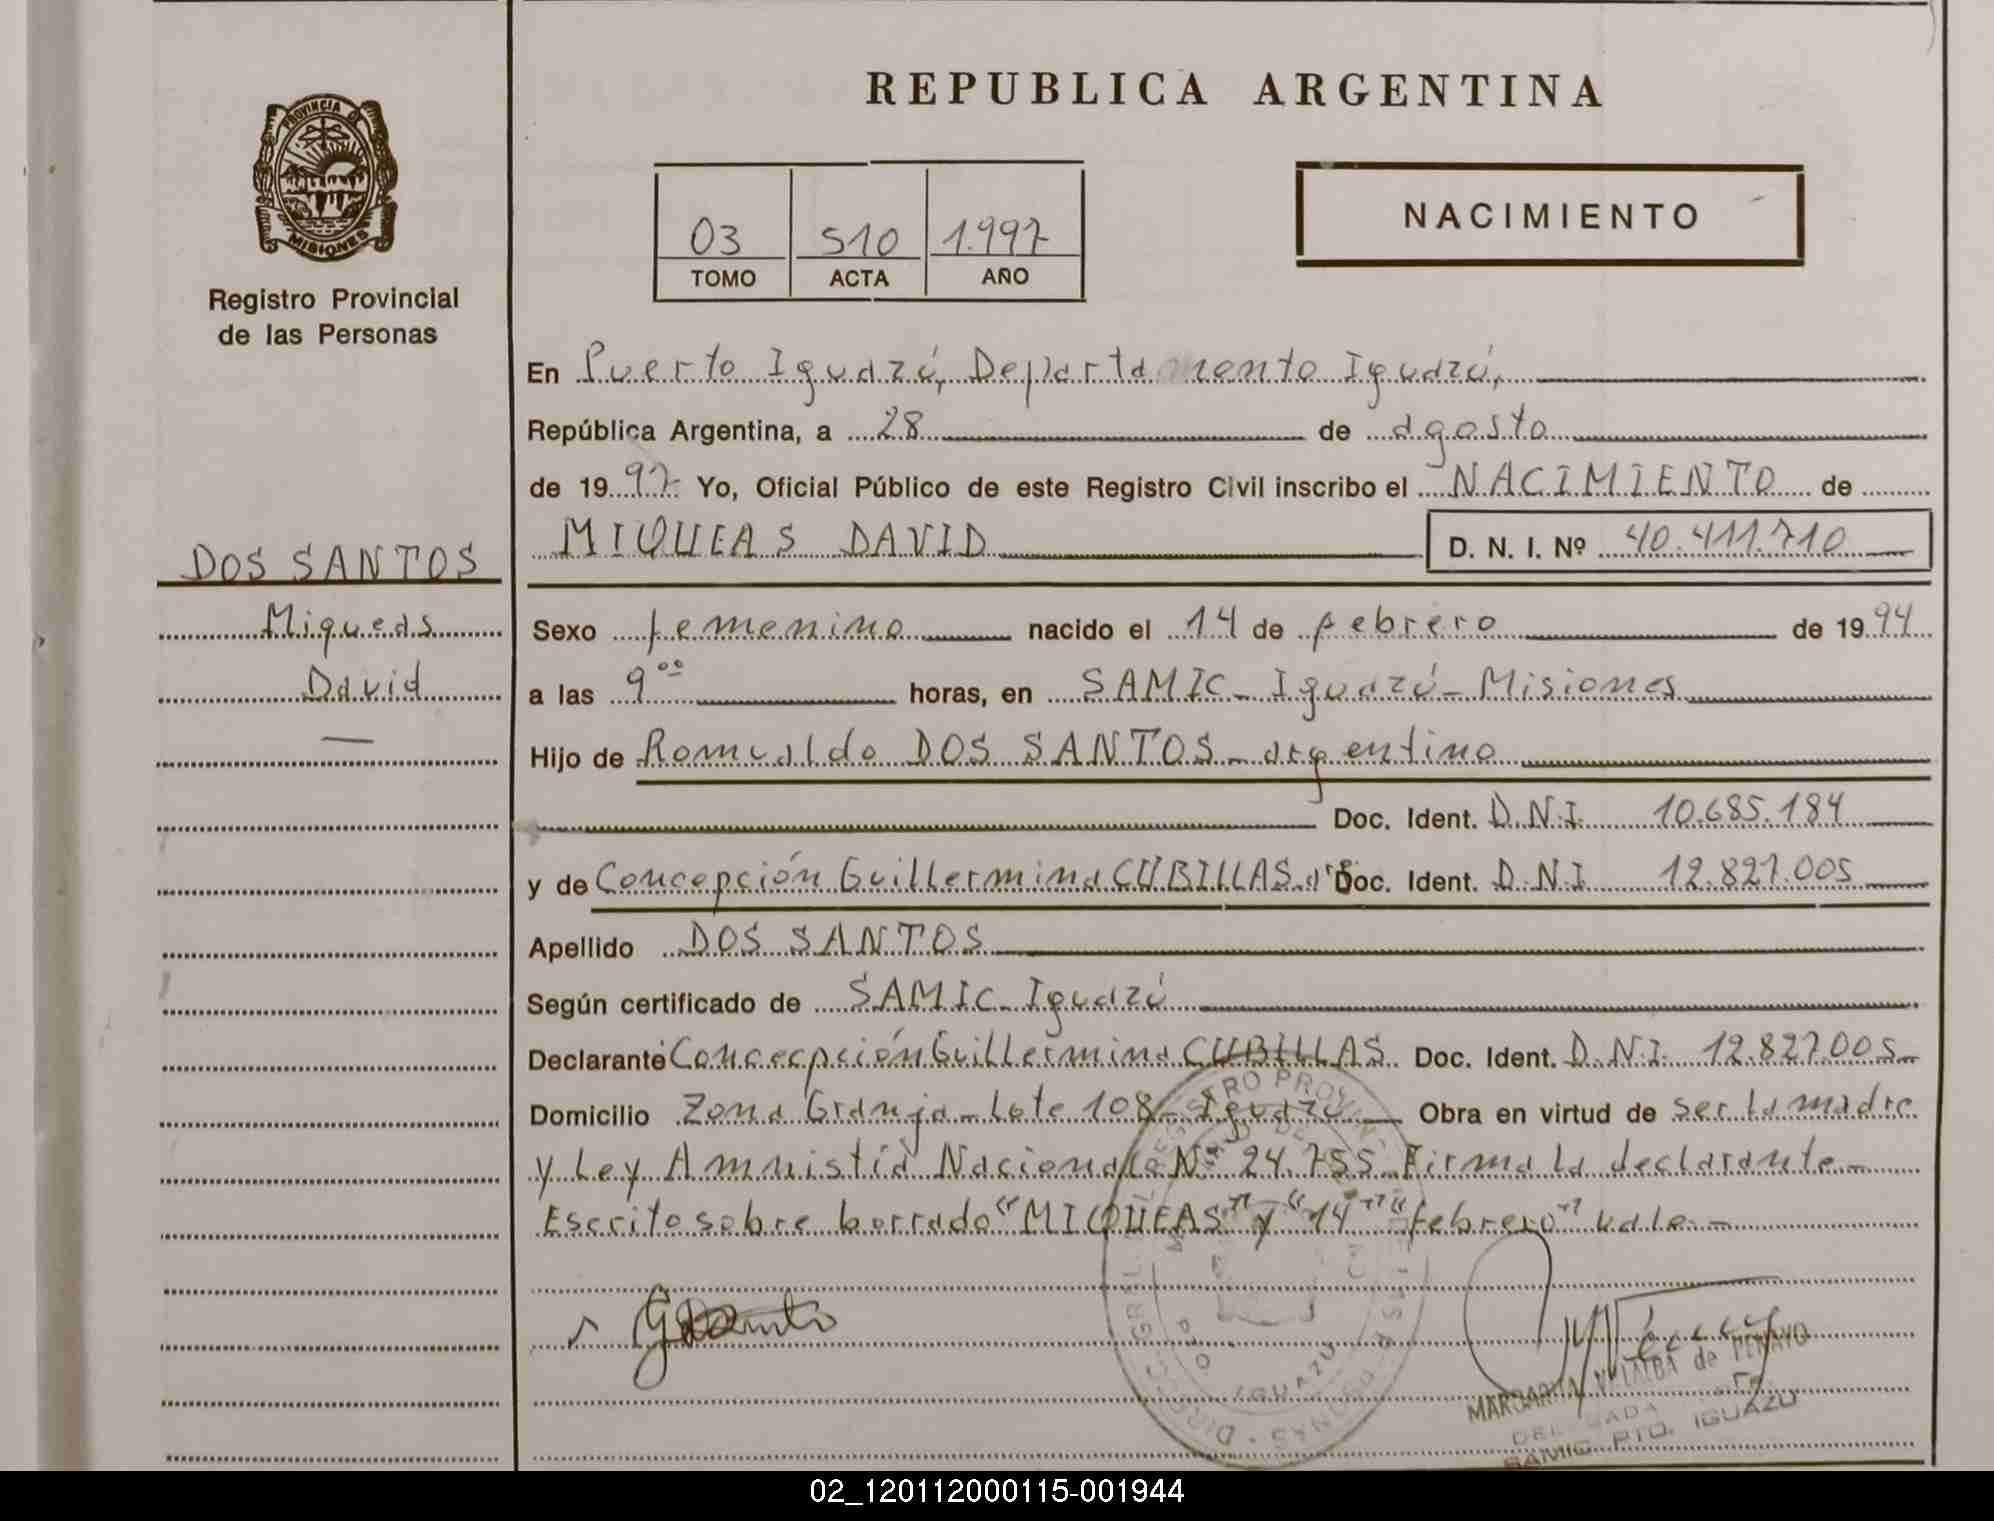 REPUBLICA ARGENTINA
PROVINCIA DE
MISIONES
Registro Provincial
de las Personas
03 510 1.997
TOMO ACTA AÑO
NACIMIENTO
En Puerto Iguazú, Departamento Iguazú,
República Argentina, a 28 de agosto
de 1997 Yo, Oficial Público de este Registro Civil inscribo el NACIMIENTO de
MIQUEAS DAVID D. N. I. Nº 40.411.710
DOS SANTOS
Miqueas
David
Sexo femenino nacido el 14 de febrero de 1994
a las 9°° horas, en SAMIC - Iguazú - Misiones
Hijo de Romualdo DOS SANTOS - argentino
Doc. Ident. D.N.I. 10.685.184
y de Concepción Guillermina CUBILLAS Doc. Ident. D.N.I. 12.827.005
Apellido DOS SANTOS
Según certificado de SAMIC - Iguazú
Declarante Concepción Guillermina CUBILLAS Doc. Ident. D.N.I. 12.827.005-
Domicilio Zona Granja - Lote 108 - Iguazú Obra en virtud de ser la madre
y Ley Amnistía Nacional Nº 24.755 Firma la declarante -
Escrito sobre borrado "MIQUEAS" y "14" "febrero" vale. -
IGUAZU
MARGARITA VILLALBA de PENAYO
SAMIC PTO. IGUAZU
02_120112000115-001944